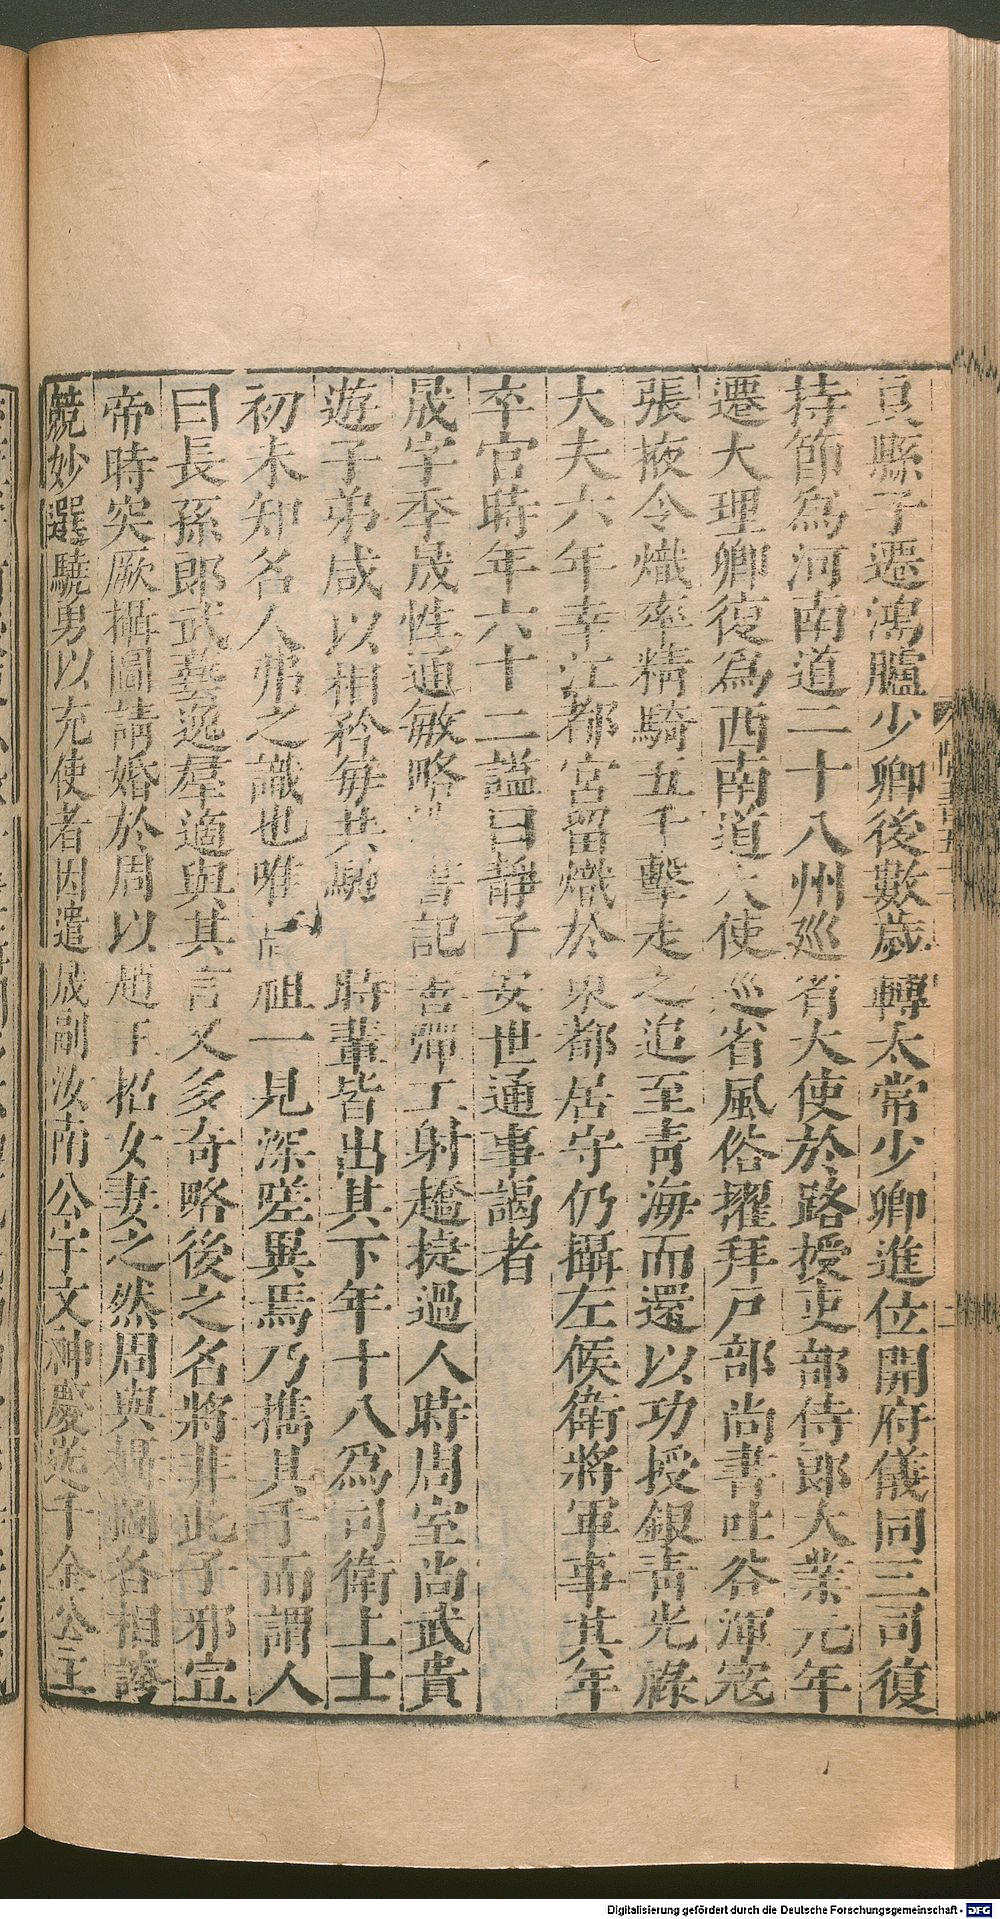 良縣子遷鴻臚少卿後數歲轉太常少卿進位開府儀同三司復
持節為河南道二十八州巡省大使於路授吏部侍郎大業元年
遷大理卿復為西南道大使巡省風俗擢拜戸部尚書吐谷渾寇
張掖令熾率精騎五千擊走之追至青海而還以功授銀青光祿
大夫六年幸江都宮留熾於東都居守仍攝左候衛將軍事其年
卒官時年六十二謚曰靜子安世通事謁者
晟字季晟性通敏略書記善彈工射趫捷過人時周室尚武貴
遊子弟咸以相矜每共馳時輩皆出其下年十八為司衛上士
初未知名人弗之識也唯高祖一見深嗟異焉乃攜其手而謂人
曰長孫郎武藝逸羣適與其言又多奇略後之名將非此子邪宣
帝時突厥攝圖請婚於周以趙王招女妻之然周與攝圖各相誇
競妙選驍勇以充使者因遣晟副汝南公宇文神慶送千金公主
隋書五十一
Digitalisierung gefördert durch die Deutsche Forschungsgemeinschaft - DFG